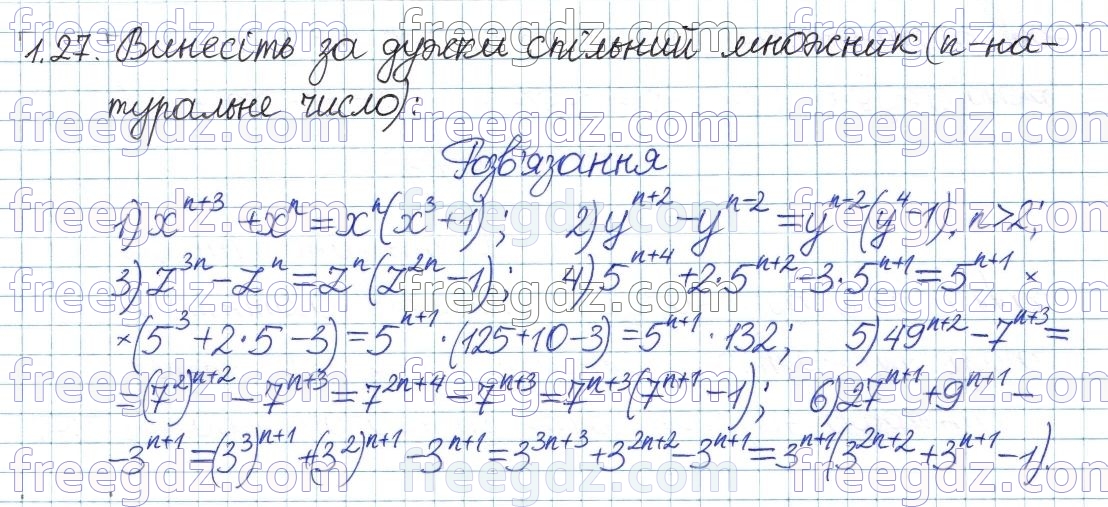 1.27. Винесіть за дужки спільний множник (n-на-
туральне число):
Розв'язання
1) x^{n+3} + x^n = x^n(x^3+1); 2) y^{n+2} - y^{n-2} = y^{n-2}(y^4-1), n>2;
3) z^{3n} - z^n = z^n(z^{2n}-1); 4) 5^{n+4} + 2·5^{n+2} - 3·5^{n+1} = 5^{n+1} ×
×(5^3+2·5-3) = 5^{n+1}·(125+10-3) = 5^{n+1}·132; 5) 49^{n+2} - 7^{n+3} =
= (7^2)^{n+2} - 7^{n+3} = 7^{2n+4} - 7^{n+3} = 7^{n+3}(7^{n+1}-1); 6) 27^{n+1} + 9^{n+1} -
-3^{n+1} = (3^3)^{n+1} + (3^2)^{n+1} - 3^{n+1} = 3^{3n+3} + 3^{2n+2} - 3^{n+1} = 3^{n+1}(3^{2n+2} + 3^{n+1} - 1).
freegdz.com